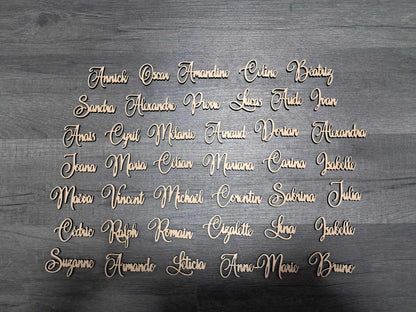 Annick Oscar Amandine Céline Béatriz
Sandra Alexandre Pierre Lucas Aude Ivan
Anaïs Cyril Mélanie Arnaud Dorian Alexandra
Joana Maria Cilian Mariana Carina Isabelle
Maëva Vincent Michaël Corentin Sabrina Julia
Cédric Ralph Romain Lina Isabelle
Suzanne Armando Léticia Anne-Marie Bruno